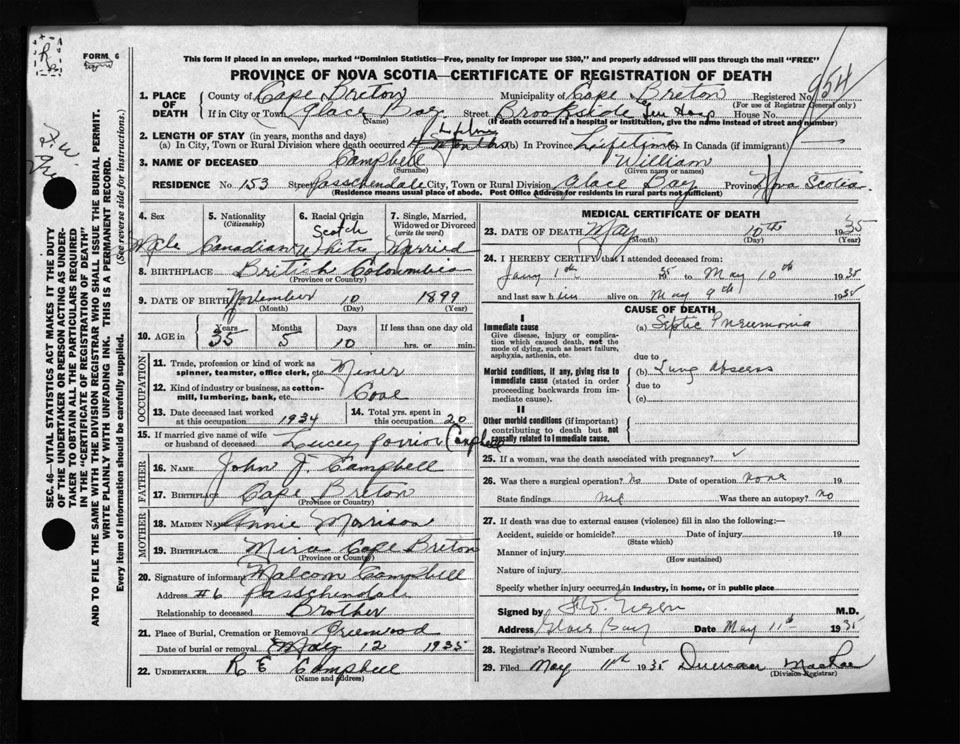 R
FORM 6
This form if placed in an envelope, marked "Dominion Statistics—Free, penalty for improper use $300," and properly addressed will pass through the mail "FREE"
PROVINCE OF NOVA SCOTIA—CERTIFICATE OF REGISTRATION OF DEATH
954
1. PLACE OF DEATH
County of Cape Breton Municipality of Cape Breton Registered No.
(For use of Registrar General only)
If in City or Town Glace Bay Street Brookside Gen Hosp House No.
(Name) (If death occurred in a hospital or institution, give the name instead of street and number)
2. LENGTH OF STAY (in years, months and days)
(a) In City, Town or Rural Division where death occurred 4 months (b) In Province Lifetime In Canada (if immigrant)
3. NAME OF DECEASED Campbell William
(Surname) (Given name or names)
RESIDENCE No. 153 Street Passchendale City, Town or Rural Division Glace Bay Province Nova Scotia
(Residence means usual place of abode. Post Office Address for residents in rural parts not sufficient)
SEC. 46—VITAL STATISTICS ACT MAKES IT THE DUTY
OF THE UNDERTAKER OR PERSON ACTING AS UNDER-
TAKER TO OBTAIN ALL THE PARTICULARS REQUIRED
IN THE "CERTIFICATE OF REGISTRATION OF DEATH"
AND TO FILE THE SAME WITH THE DIVISION REGISTRAR WHO SHALL ISSUE THE BURIAL PERMIT.
WRITE PLAINLY WITH UNFADING INK. THIS IS A PERMANENT RECORD.
Every item of information should be carefully supplied. (See reverse side for instructions.)
4. Sex 5. Nationality 6. Racial Origin 7. Single, Married, Widowed or Divorced
(Citizenship) Scotch (write the word)
Male Canadian White Married
8. BIRTHPLACE British Columbia
(Province or Country)
9. DATE OF BIRTH November 10 1899
(Month) (Day) (Year)
10. AGE in Years Months Days If less than one day old
35 5 10 hrs. or min.
OCCUPATION
11. Trade, profession or kind of work as spinner, teamster, office clerk, etc. Miner
12. Kind of industry or business, as cotton-mill, lumbering, bank, etc. Coal
13. Date deceased last worked at this occupation 1934 14. Total yrs. spent in this occupation 20
15. If married give name of wife or husband of deceased Campbell
FATHER
16. NAME John J. Campbell
17. BIRTHPLACE Cape Breton
(Province or Country)
MOTHER
18. MAIDEN NAME Annie Morrison
19. BIRTHPLACE Mira Cape Breton
(Province or Country)
20. Signature of informant Malcom Campbell
Address #6 Passchendale
Relationship to deceased Brother
21. Place of Burial, Cremation or Removal Greenwood
Date of burial or removal May 12 1935
22. UNDERTAKER R E Campbell
(Name and address)
MEDICAL CERTIFICATE OF DEATH
23. DATE OF DEATH May 10th 1935
(Month) (Day) (Year)
24. I HEREBY CERTIFY that I attended deceased from:
Jany 1st 1935 to May 10th 1935
and last saw him alive on May 9th 1935
CAUSE OF DEATH
I
Immediate cause (a) Septic Pneumonia
Give disease, injury or complica-
tion which caused death, not the
mode of dying, such as heart failure,
asphyxia, asthenia, etc.
due to
Morbid conditions, if any, giving rise to (b) Lung abscess
immediate cause (stated in order due to
proceeding backwards from im-
mediate cause). (c)
II
Other morbid conditions (if important)
contributing to death but not
causally related to immediate cause.
25. If a woman, was the death associated with pregnancy?
26. Was there a surgical operation? no Date of operation none 19
State findings nil Was there an autopsy? no
27. If death was due to external causes (violence) fill in also the following:—
Accident, suicide or homicide? Date of injury 19
(State which)
Manner of injury
(How sustained)
Nature of injury
Specify whether injury occurred in industry, in home, or in public place
Signed by M.D.
Address Glace Bay Date May 11th 1935
28. Registrar's Record Number
29. Filed May 11th 1935 Duncan MacRae
(Division Registrar)